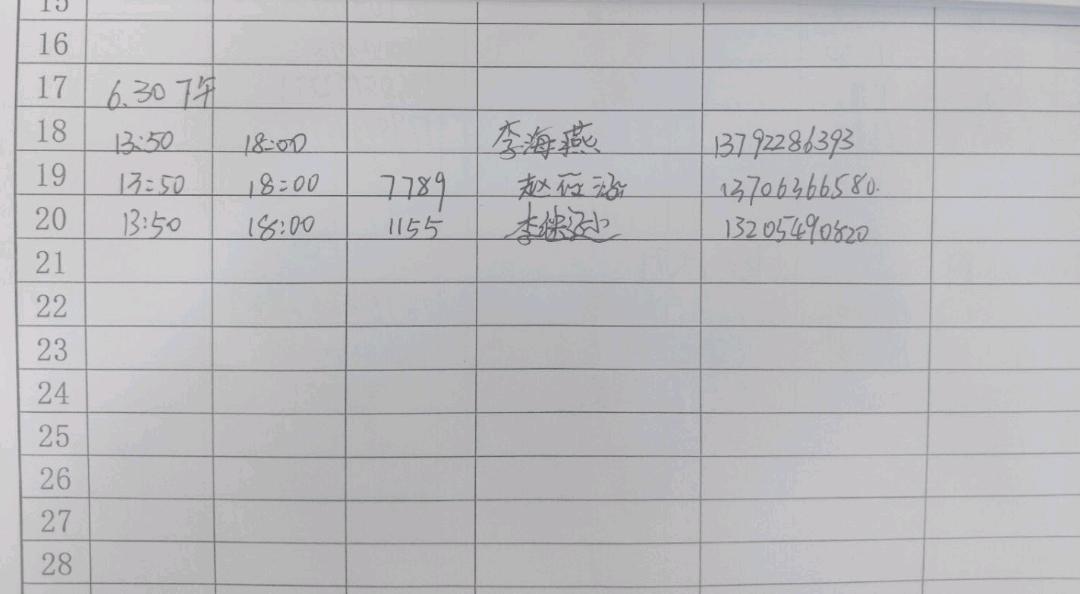 15
16
17 6.30 下午
18 13:50 18:00 李海燕 13792286393
19 13:50 18:00 7789 赵 13706366580.
20 13:50 18:00 1155 李 13205490820
21
22
23
24
25
26
27
28